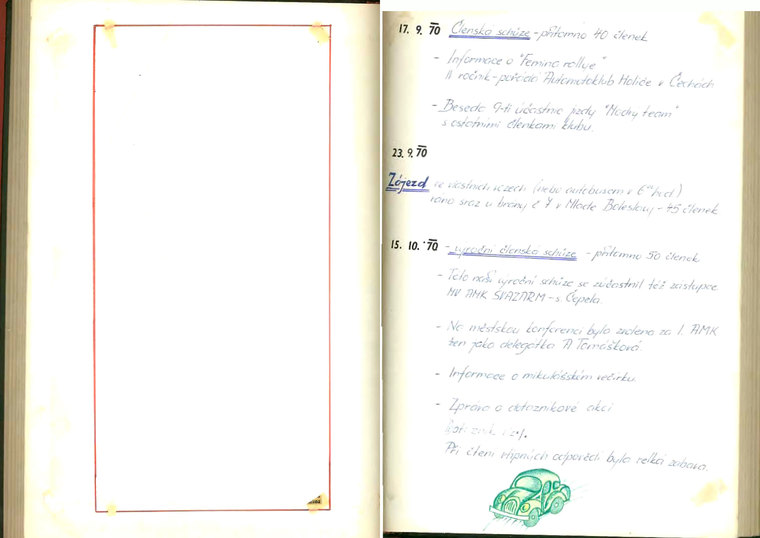 17. 9. 70 Členská schůze - přítomno 40 členek
- Informace o "Femina rallye"
II ročník - pořádá Automotoklub Holice v Čechách
- Beseda 9-ti účastnic jízdy "Modrý team"
s ostatními členkami klubu.
23. 9. 70
Zájezd ve vlastních vozech (nebo autobusem v 6 hod)
ráno sraz u brány č 7 v Mladé Boleslavi - 45 členek
15. 10. 70 - výroční členská schůze - přítomno 50 členek
- Této naší výroční schůze se zúčastnil též zástupce
MV AMK SVAZARM - s. Čapela.
- Na městskou konferenci byla zvolena za I. AMK
žen jako delegátka A Tomášková.
- Informace o mikulášském večírku.
- Zpráva o dotazníkové akci
Při čtení vtipných odpovědí byla velká zábava.